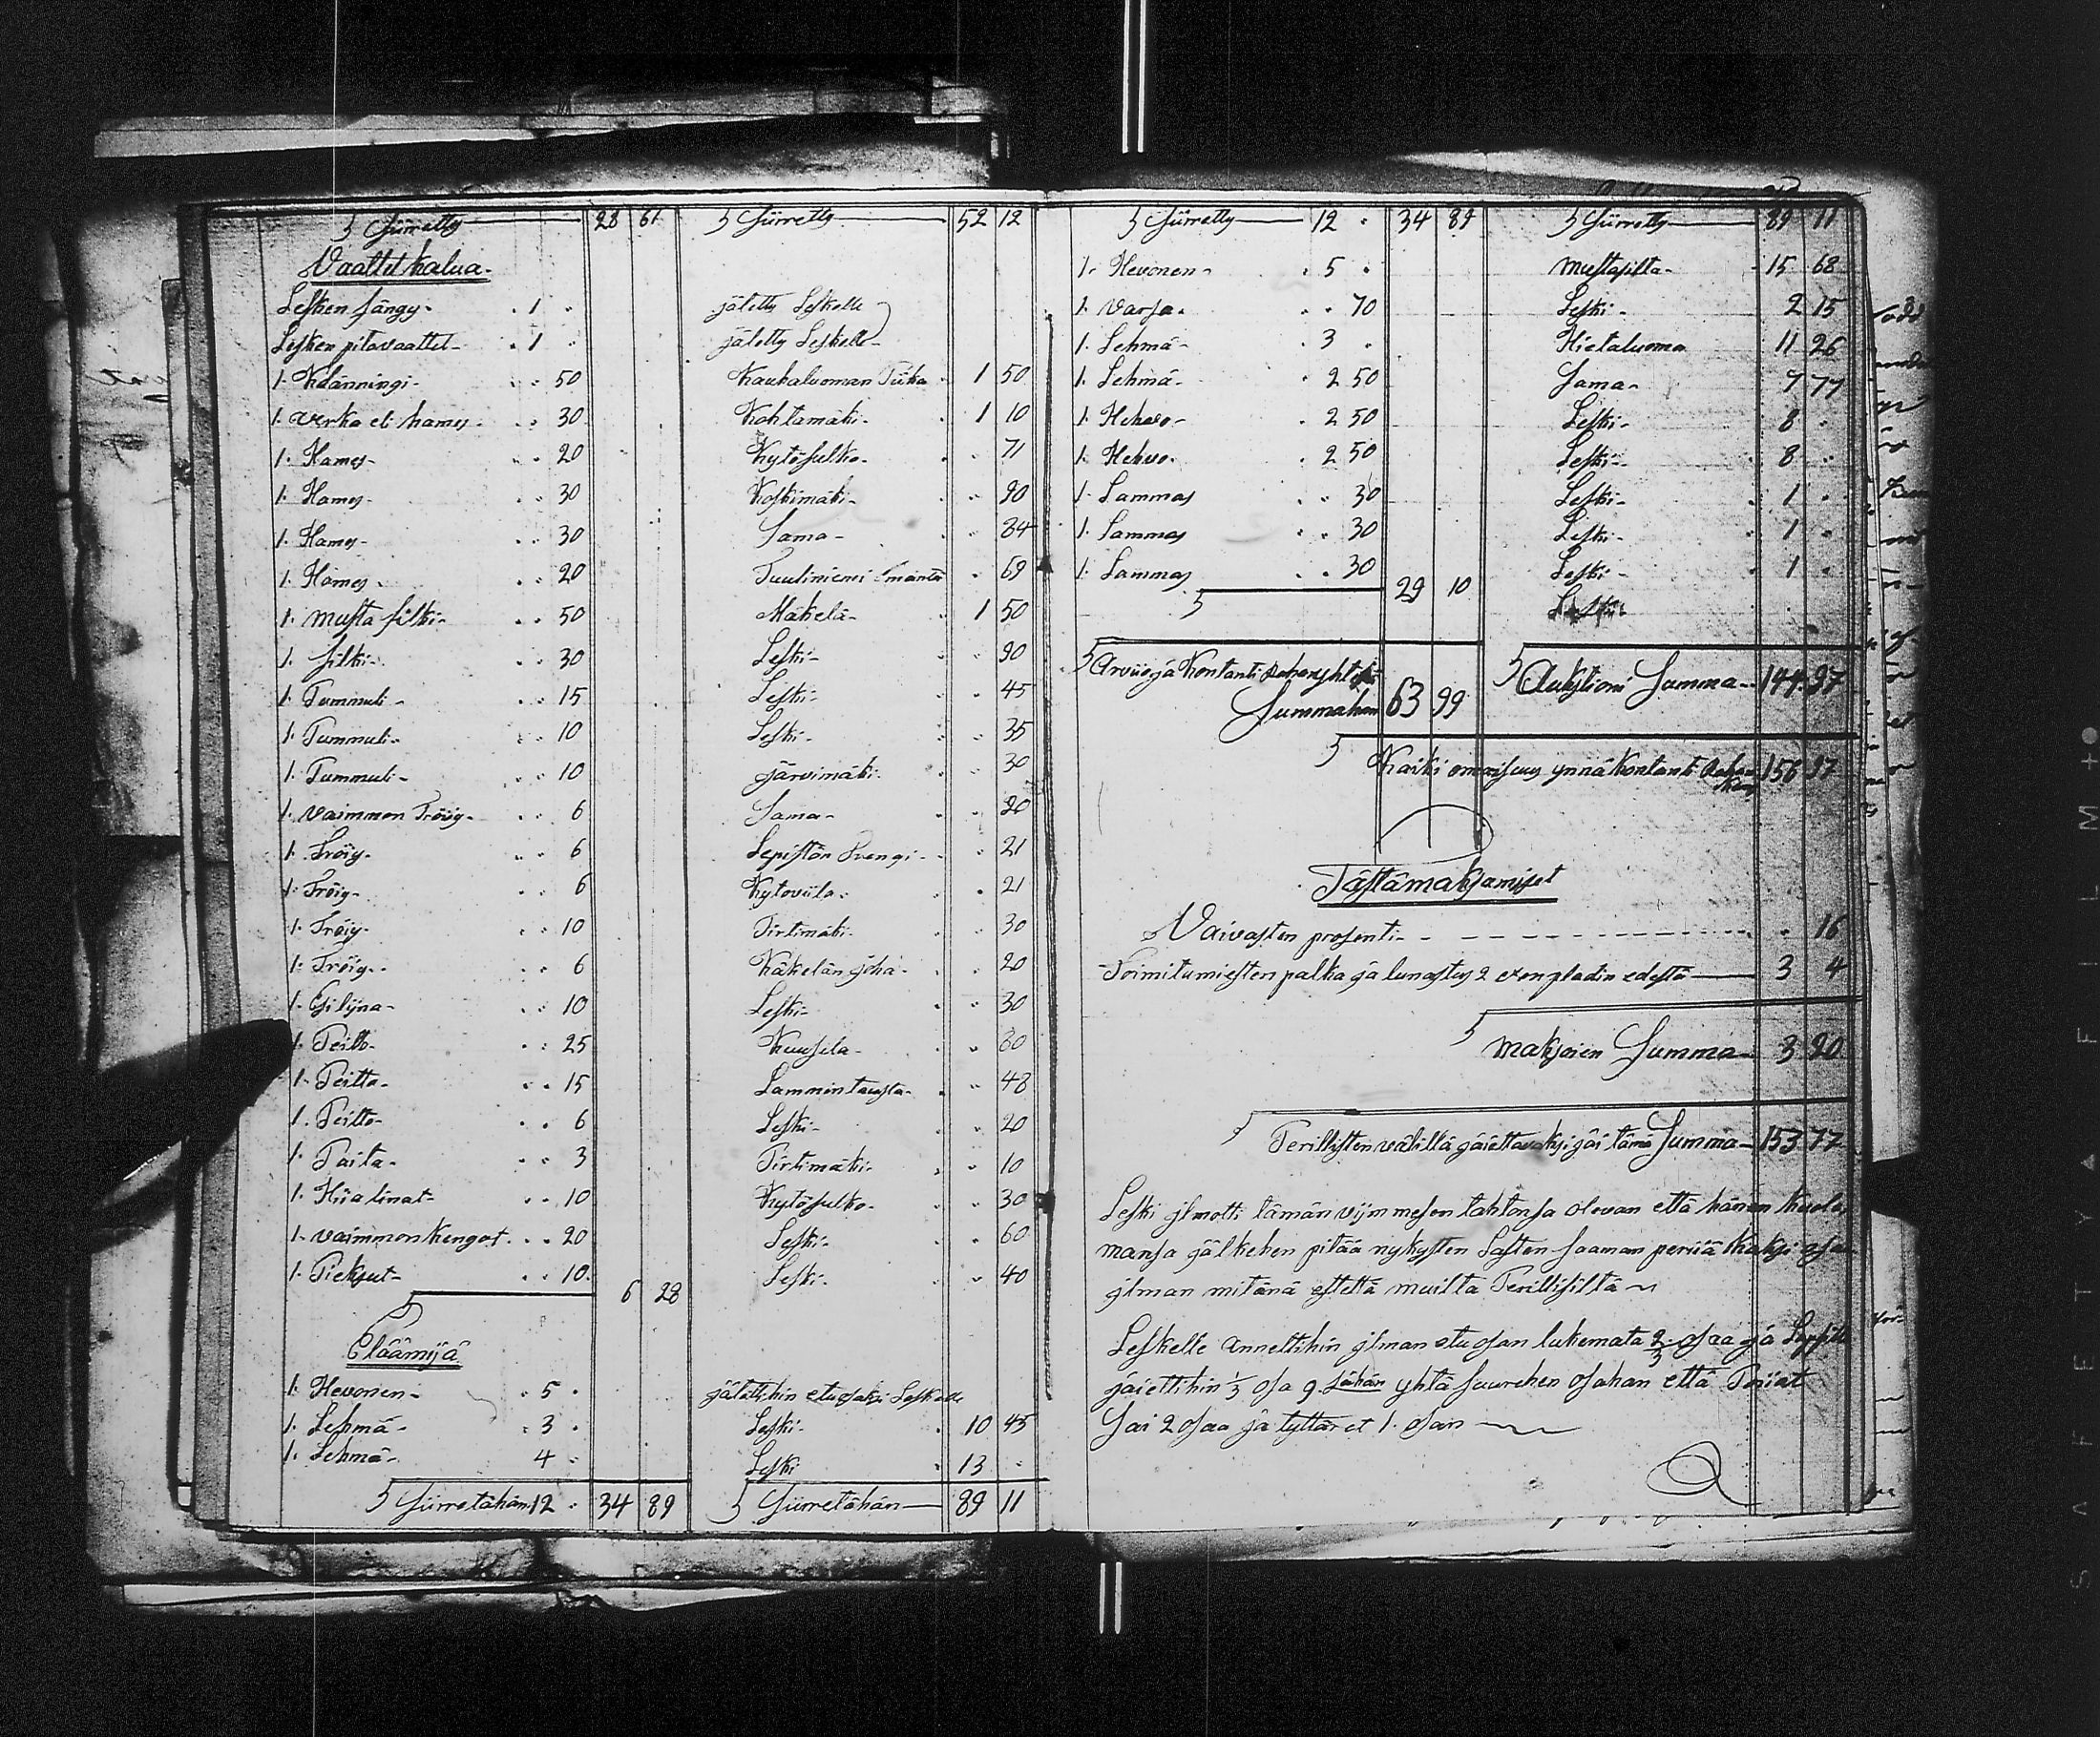 S Siirretty 28 61 S Siirretty 52 12
Vaattet kalua
Lesken sängy 1 jätetty Leskelle
Lesken pitovaattet 1 jätetty Leskelle
1. Klänningi 50 Kaukaluoman Tiika 1 50
1. verka eli hames 30 Kohtamäki 1 10
1. Hames 20 Kytösulko 71
1. Hames 30 Koskimäki 90
1. Hames 30 Sama 84
1. Hames 20 Tuuliniemi Emäntä 69
1. musta silki 50 Mäkelä 1 50
1. silki 30 Leski 90
1. Tummuli 15 Leski 45
1. Tummuli 10 Leski 35
1. Tummuli 10 Järvimäki 30
1. vaimmon Tröijy 6 Sama 20
1. Tröijy 6 Lepistön Drengi 21
1. Tröijy 6 Kytoviila 21
1. Tröijy 10 Pirtimäki 30
1. Tröijy 6 Käkelän joha 20
1. 10 Leski 30
1. Peitto 25 Kuusela 80
1. Peitto 15 Lammintausta 48
1. Peitto 6 Leski 20
1. Paita 3 Pirtimäki 10
1. Hiialinat 10 Kytösulko 30
1. vaimmon kengat 20 Leski 60
1. Pieksut 10 Leski 40
S 6 28
Eläämijä
1. Hevonen 5 jätettihin etuosaksi Leskelle
1. Lehmä 3 Leski 10 45
1. Lehmä 4 Leski 13
S Siirretähän 12 34 89 S Siirretähän 89 11
S Siirretty 12 34 89 S Siirretty 89 11
1. Hevonen 5 Mustasilta 15 68
1. Varsa 70 Leski 2 15
1. Lehmä 3 Hietaluoma 11 26
1. Lehmä 2 50 Sama 7 77
1. Hehvo 2 50 Leski 8
1. Hehvo 2 50 Leski 8
1. Lammas 30 Leski 1
1. Lammas 30 Leski 1
1. Lammas 30 Leski 1
S 29 10
S Arvio ja Kontanti Rahan yhteki
Summahan 63 99 S Auktsioni Summa 144 97
S Kaiki omaisuus ynnä kontanti Rahan kans 156 97
Tästä maksamiset
Vaivasten prosenti 16
Toimitumiesten palka ja lunastus 2 exenpladin edestä 3 4
S maksoien Summa 3 20
S Perillisten välillä jaiettavaksi jäi tämä Summa 153 77
Leski ilmotti tämän viimmesen tahtonsa olevan että hänen kuole
mansa jälkehen pitää nykysten Lasten saaman periiä kaksi osaa
ilman mitänä estettä muilta Perillisiltä
Leskelle annettihin ilman etuosan lukemata 2/3 osaa ja Lapsille
jaiettihin 1/3 osa 9. sähän yhtä suurehen osahan että Pojat
sai 2 osaa ja tyttäret 1. osan
SAFETY FILM